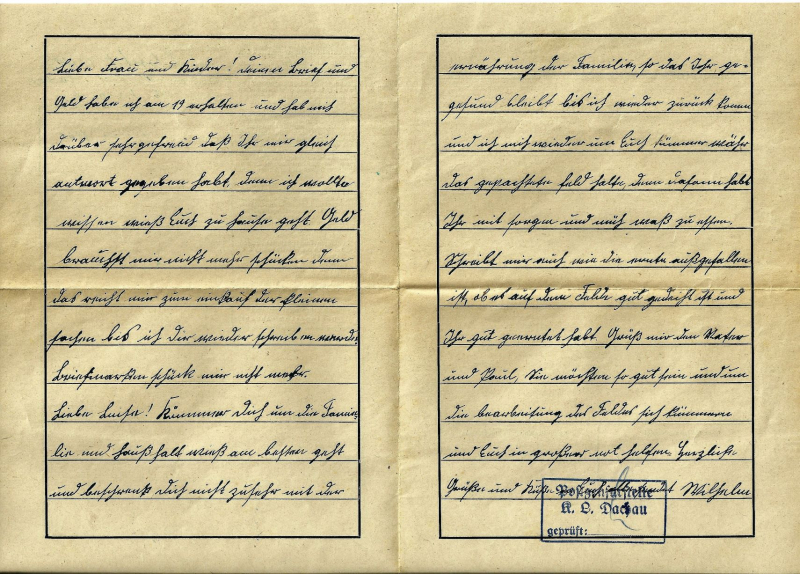 Liebe Frau und Kinder! Deinen Brief und
Geld habe ich am 19 erhalten und hab mich
drüber sehr gefreud daß Ihr mir gleich
antwort gegeben habt. denn ich wollte
wissen wieß Euch zu hause geht. Geld
brauchst mir nicht mehr schücken denn
das reicht mir zum einkauf der kleinen
sachen bis ich dir wieder schreiben werde.
Briefmarken schück mir nicht mehr.
Liebe! Kümmer Dich um die Fami-
lie und haußhalt wieß am besten geht
und beschrenk dich nicht zusehr mit der
ernährung der Familie, so das Ihr ge-
gesund bleibt bis ich wieder zurück komm
und ich mich wieder um Euch kümmer
das gepachtete feld halte, denn habt
Ihr mit sorgen und müh waß zu essen.
Schreibt mir auch wie die ernte außgefallen
ist, ob es auf dem Felde gut ist und
Ihr gut geerntet habt. Grüß mir den Vater
und Paul, Sie möchten so gut sein und um
die bearbeitung des Feldes sich kümmern
und Euch in großer not helfen. Herzliche
Grüße und Küße Wilhelm
Postzensurstelle
K. L. Dachau
geprüft: